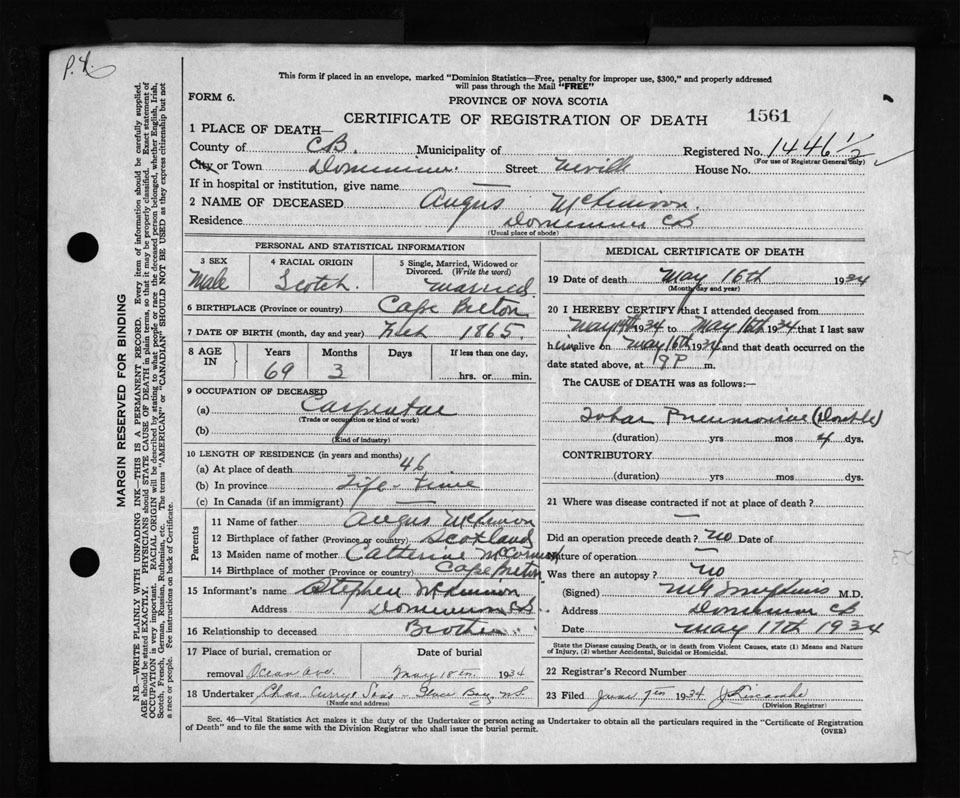 P.X.
This form if placed in an envelope, marked "Dominion Statistics—Free, penalty for improper use, $300," and properly addressed
will pass through the Mail "FREE"
FORM 6.
PROVINCE OF NOVA SCOTIA
CERTIFICATE OF REGISTRATION OF DEATH 1561
1 PLACE OF DEATH—
County of CB. Municipality of Registered No. 1446 1/2
(For use of Registrar General only)
City or Town Dominion. Street Neville House No.
If in hospital or institution, give name —
2 NAME OF DECEASED Angus McKinnon.
Residence Dominion CB
(Usual place of abode)
PERSONAL AND STATISTICAL INFORMATION
3 SEX 4 RACIAL ORIGIN 5 Single, Married, Widowed or Divorced. (Write the word)
Male Scotch. Married.
6 BIRTHPLACE (Province or country) Cape Breton
7 DATE OF BIRTH (month, day and year) Feb 1865.
8 AGE IN Years Months Days If less than one day,
69 3 hrs. or min.
9 OCCUPATION OF DECEASED
(a) Carpentar
(Trade or occupation or kind of work)
(b)
(Kind of industry)
10 LENGTH OF RESIDENCE (in years and months)
(a) At place of death 46
(b) In province Life-time
(c) In Canada (if an immigrant) —
Parents
11 Name of father Angus McKinnon
12 Birthplace of father (Province or country) Scotland
13 Maiden name of mother Catherine McCormick
14 Birthplace of mother (Province or country) Cape Breton
15 Informant's name Stephen McKinnon
Address Dominion CB.
16 Relationship to deceased Brother.
17 Place of burial, cremation or removal Ocean Ave. Date of burial May 18th. 1934
18 Undertaker Chas. Curry & Sons - Glace Bay, N.S.
(Name and address)
MEDICAL CERTIFICATE OF DEATH
19 Date of death May 16th 1934
(Month, day and year)
20 I HEREBY CERTIFY that I attended deceased from
May 14th 1934 to May 16th 1934 that I last saw
him alive on May 16th 1934 and that death occurred on the
date stated above, at 9 P m.
The CAUSE of DEATH was as follows:—
Lobar Pneumoniae (Double)
(duration) yrs mos 4 dys.
CONTRIBUTORY
(duration) yrs mos dys.
21 Where was disease contracted if not at place of death?
—
Did an operation precede death? No Date of
Nature of operation —
Was there an autopsy? No
(Signed) M.D.
Address Dominion CB
Date May 17th 1934
State the Disease causing Death, or in death from Violent Causes, state (1) Means and Nature
of Injury, (2) whether Accidental, Suicidal or Homicidal.
22 Registrar's Record Number
23 Filed June 7th 1934
(Division Registrar)
Sec. 46—Vital Statistics Act makes it the duty of the Undertaker or person acting as Undertaker to obtain all the particulars required in the "Certificate of Registration
of Death" and to file the same with the Division Registrar who shall issue the burial permit. (OVER)
MARGIN RESERVED FOR BINDING
N.B.—WRITE PLAINLY WITH UNFADING INK—THIS IS A PERMANENT RECORD. Every item of information should be carefully supplied.
AGE should be stated EXACTLY. PHYSICIANS should STATE CAUSE OF DEATH in plain terms, so that it may be properly classified. Exact statement of
OCCUPATION is very important. RACIAL ORIGIN will be described by stating to what people or race the deceased person belonged, whether English, Irish,
Scotch, French, German, Russian, Ruthenian, etc. The terms "AMERICAN" or "CANADIAN" SHOULD NOT BE USED as they express citizenship but not
a race or people. See instructions on back of Certificate.